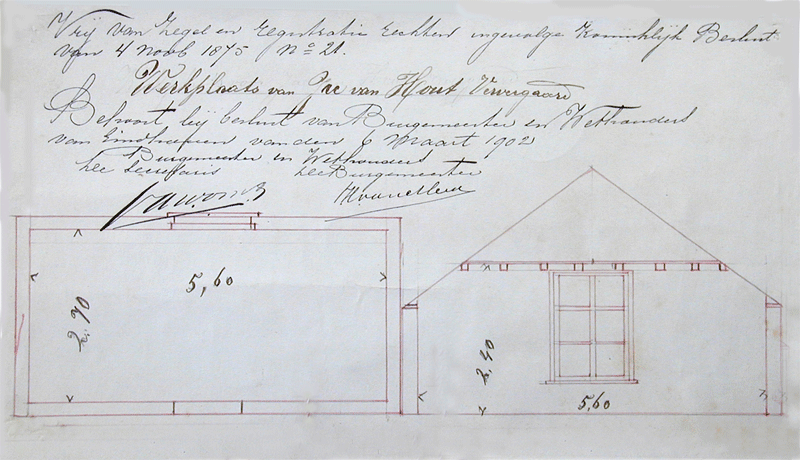 Vrij van zegel en registratie rechten ingevolge Koninklijk Besluit
van 4 Novb 1875 No 21.
Werkplaats van van Hout
Behoort bij besluit van Burgemeester en Wethouders
van Eindhoven van den 6 Maart 1902
Burgemeester en Wethouders
De Secretaris De Burgemeester
5,60
2.70
2.40
5,60